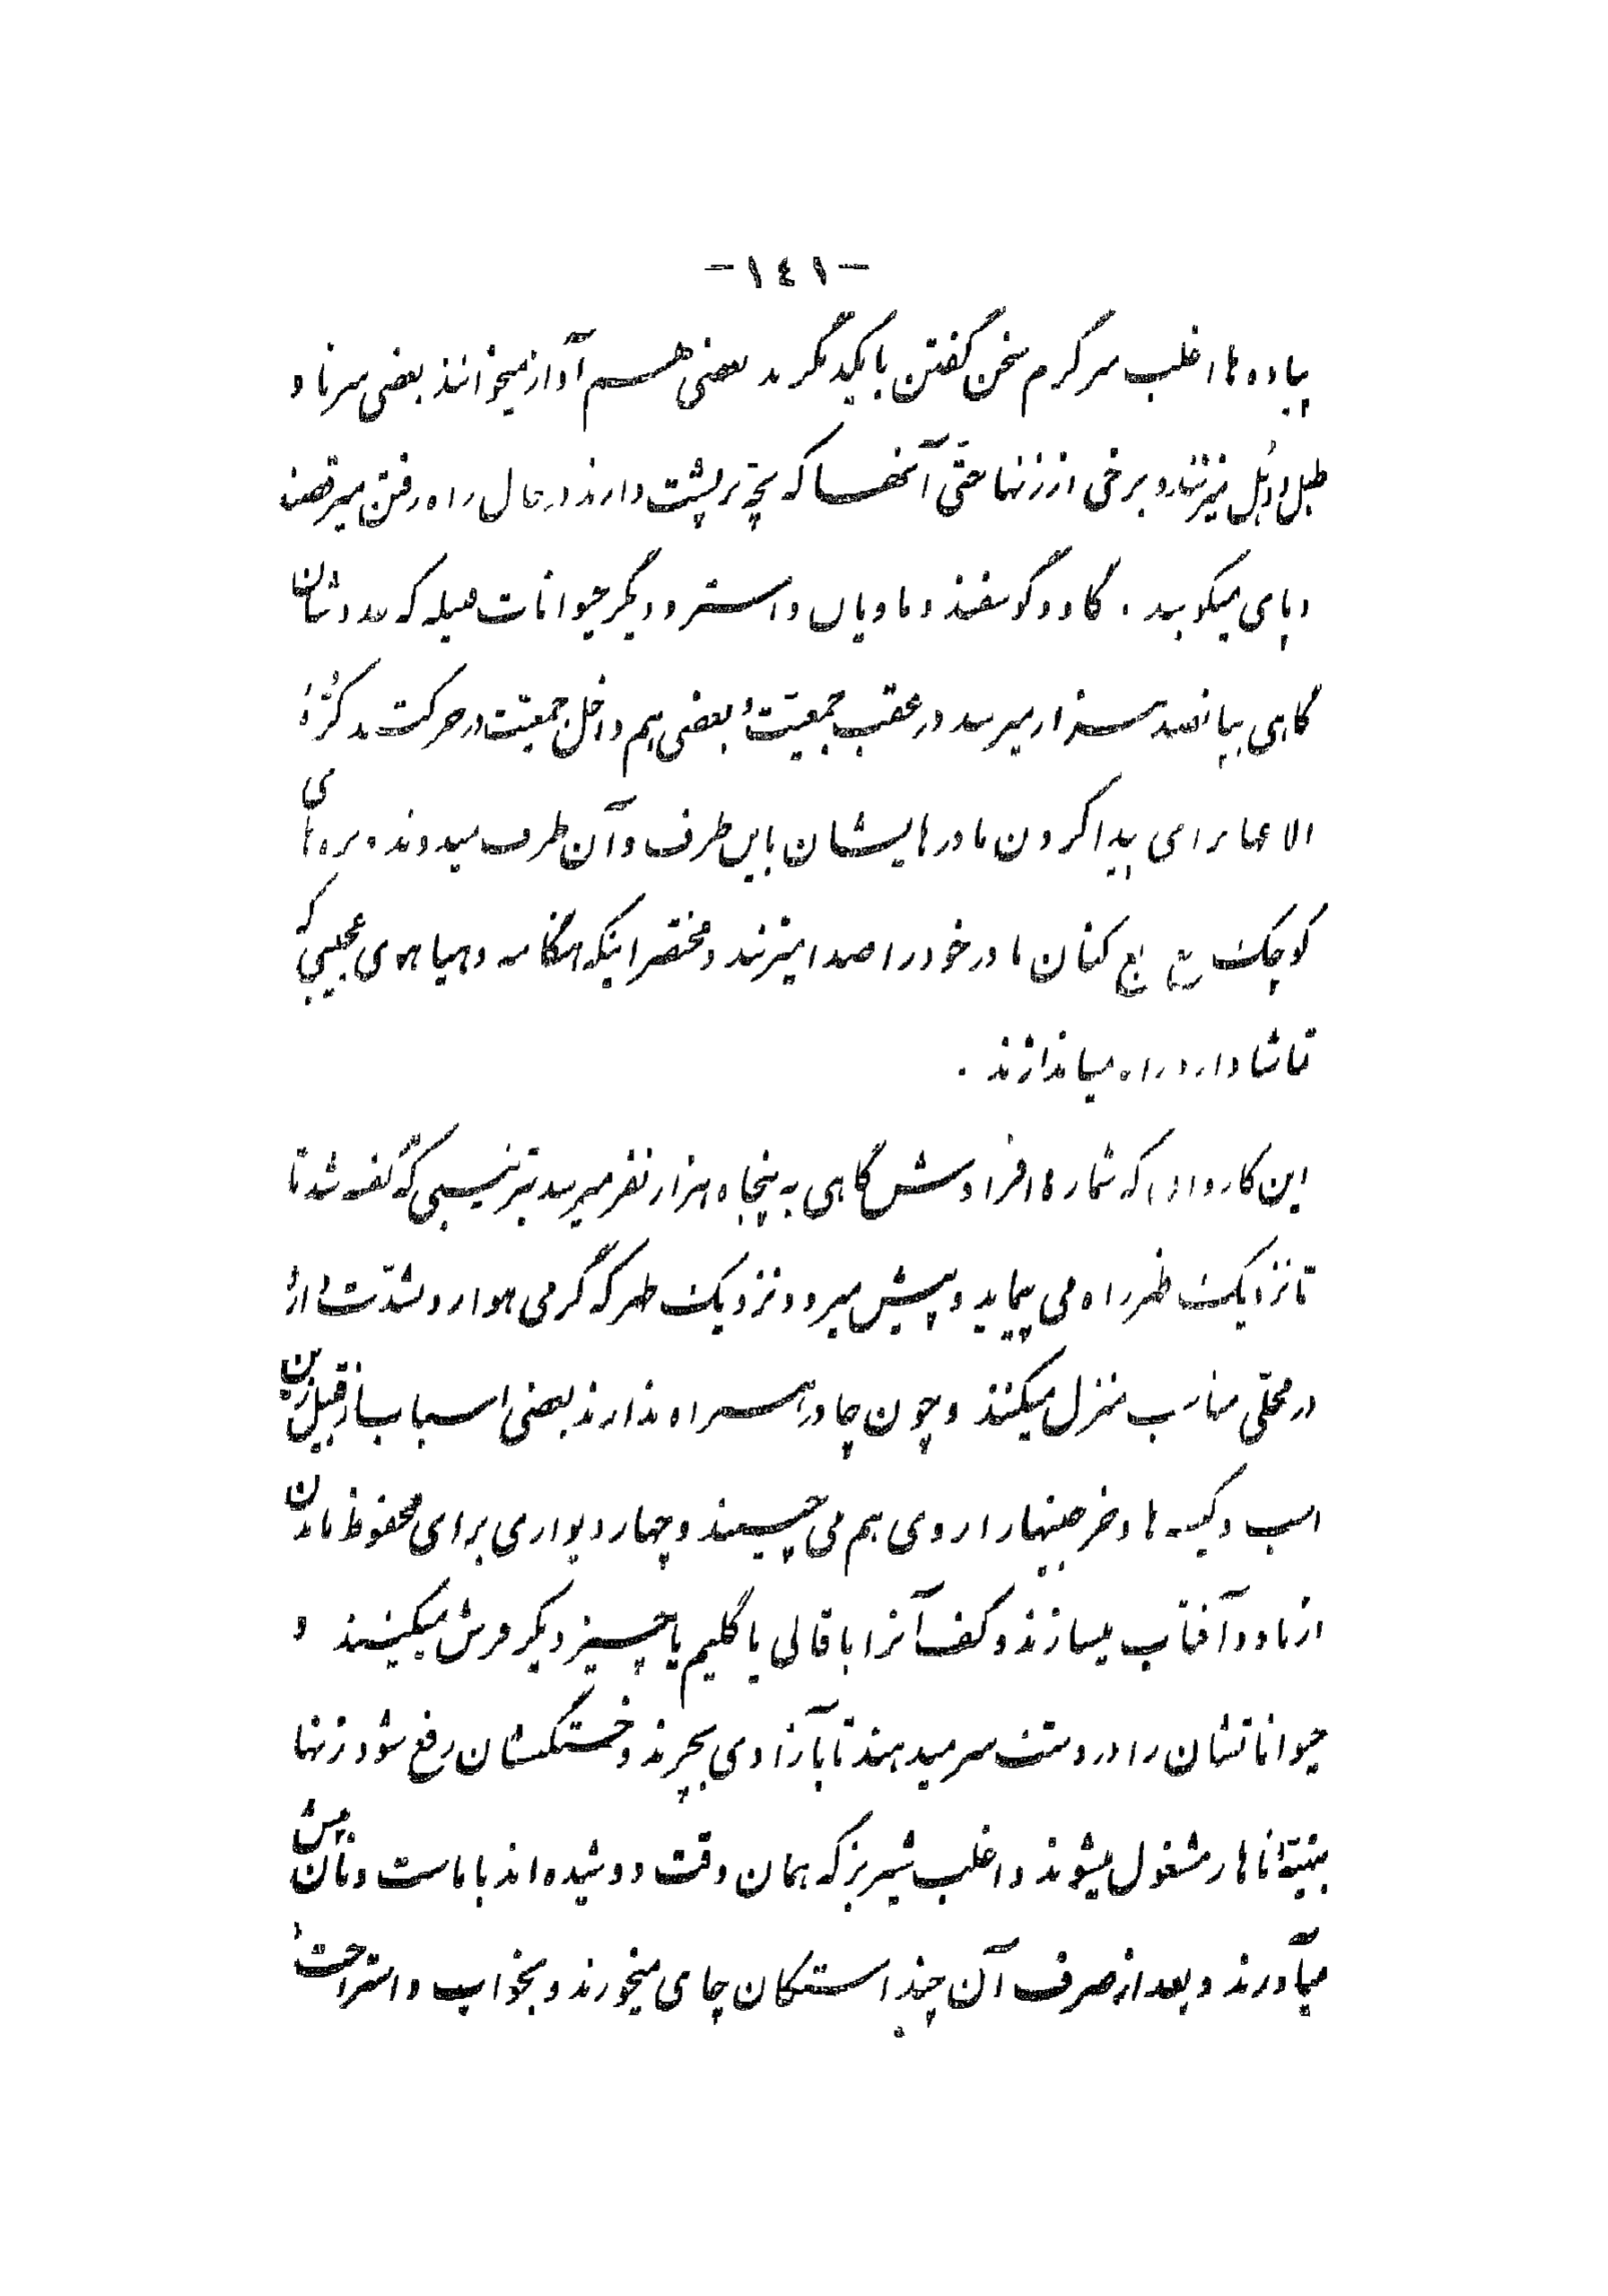 -١٤١-
پیاده ها اغلب سرگرم سخن گفتن بایکدیگرند بعضی هم آواز میخوانند بعضی سرنا و
طبل و دُهل میزنند و برخی از زنها حتّی آنها که بچّه بر پشت دارند در حال راه رفتن میرقصند
و پای میکوبند . گاو و گوسفند و مادیان و استر و دیگر حیوانات قبیله که عددشان
گاهی بپانصد هزار میرسد در عقب جمعیّت و بعضی هم داخل جمعیّت در حرکتند کُرّه
الاغها برای پیدا کردن مادرهایشان باین طرف و آن طرف میدوند و بره های
کوچک بع بع کنان مادر خود را صدا میزنند و مختصر اینکه هنگامه و هیاهوی عجیبی که
تماشا دارد راه میاندازند .
این کاروانی که شماره افرادش گاهی به پنجاه هزار نفر میرسد بترتیبی که گفته شد تا
تا نزدیک ظهر راه می پیماید و پیش میرود نزدیک ظهر که گرمی هوا رو بشدّت گذارد
در محلّی مناسب منزل میکنند و چون چادر همراه ندارند بعضی اسباب از قبیل زین
اسب و کیسه ها و خرجینها را روی هم می چینند و چهار دیواری برای محفوظ ماندن
از باد و آفتاب میسازند و کف آنرا با قالی یا گلیم یا چیز دیگر فرش میکنند و
حیواناتشان را در دشت سر میدهند تا بآزادی بچرند و خستگیشان رفع شود زنها
بتهیّه ناهار مشغول میشوند و اغلب شیر بز که همان وقت دوشیده اند با ماست و نان پیش
میآورند و بعد از صرف آن چند استکان چای میخورند و بخواب و استراحت